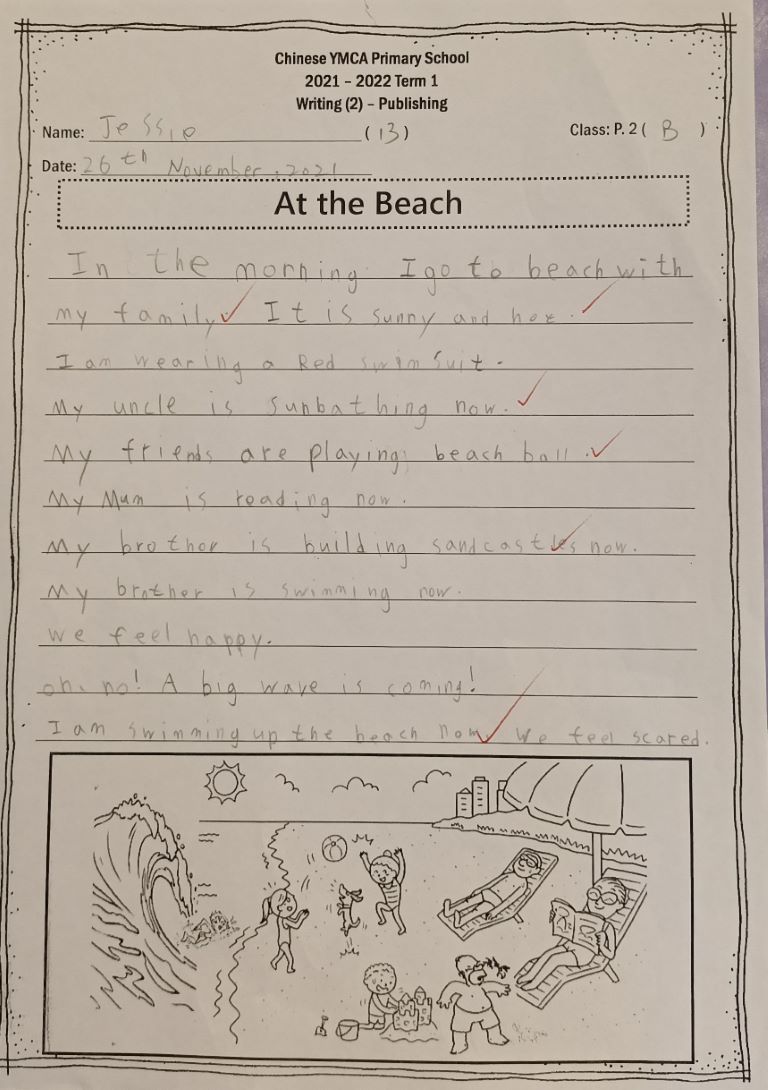 Chinese YMCA Primary School
2021 – 2022 Term 1
Writing (2) – Publishing
Name: Jessie (13) Class: P. 2 ( B )
Date: 26th November, 2021
At the Beach
In the morning I go to beach with
my family. It is sunny and hot.
I am wearing a Red swim suit.
My uncle is sunbathing now.
My friends are playing beach ball.
My Mum is reading now.
My brother is building sandcastles now.
My brother is swimming now.
We feel happy.
oh, no! A big wave is coming!
I am swimming up the beach now. We feel scared.